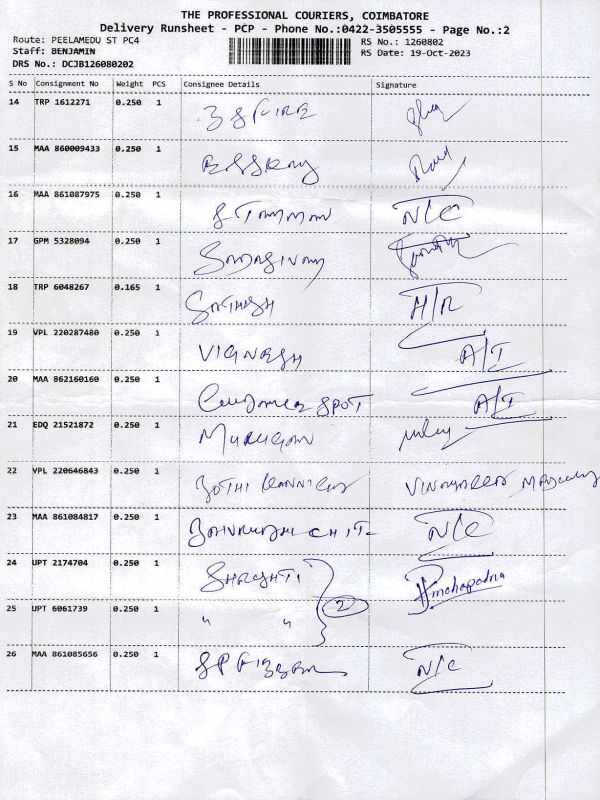 THE PROFESSIONAL COURIERS, COIMBATORE
Delivery Runsheet - PCP - Phone No.:0422-3505555 - Page No.:2
Route: PEELAMEDU ST PC4 RS No.: 1260802
Staff: BENJAMIN RS Date: 19-Oct-2023
DRS No.: DCJB126080202
S No Consignment No Weight PCS Consignee Details Signature
14 TRP 1612271 0.250 1
15 MAA 860009433 0.250 1
16 MAA 861087975 0.250 1 N/C
17 GPM 5328094 0.250 1
18 TRP 6048267 0.165 1 SATHISH H/R
19 VPL 220287480 0.250 1 VIGNESH A/I
20 MAA 862160160 0.250 1 CUSTOMER SPOT A/I
21 EDQ 21521872 0.250 1 MURUGAN
22 VPL 220646843 0.250 1 BOTHI
23 MAA 861084817 0.250 1 CHIT N/C
24 UPT 2174704 0.250 1 SHRISHTI
2
25 UPT 6061739 0.250 1 " "
26 MAA 861085656 0.250 1 SP N/C